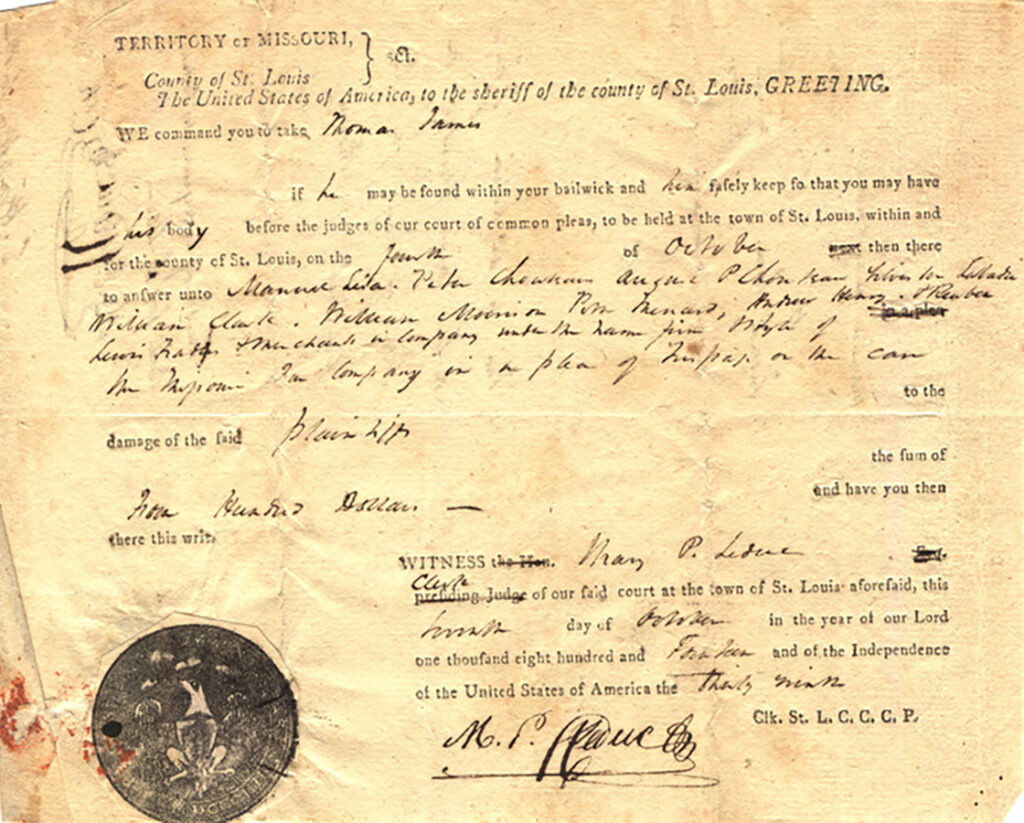 TERRITORY OF MISSOURI, } sct.
County of St. Louis
The United States of America, to the sheriff of the county of St. Louis, GREETING.
WE command you to take Thomas James
if he may be found within your bailwick and him ſafely keep ſo that you may have
his body before the judges of our court of common pleas, to be held at the town of St. Louis, within and
for the county of St. Louis, on the fourth of October next then there
to answer unto Manuel Lisa. Peter Chouteau August P Chouteau Silvester Labadie
William Clark. William Morrison Pierre Menard, Andrew Henry & Reuben in a plea
Lewis Merchants in Company under the name firm & Style of
the Missouri Fur Company in a plea of Trespass on the case
to the
damage of the ſaid plaintiffs
the ſum of
Hundred Dollars —
and have you then
there this writ.
WITNESS the Hon. Mary P. Leduc Esq.
Clerk
preſiding Judge of our ſaid court at the town of St. Louis aforeſaid, this
day of October in the year of our Lord
one thouſand eight hundred and Fourteen and of the Independence
of the United States of America the Thirty ninth
Clk. St. L. C. C. C. P.
M. P. Leduc